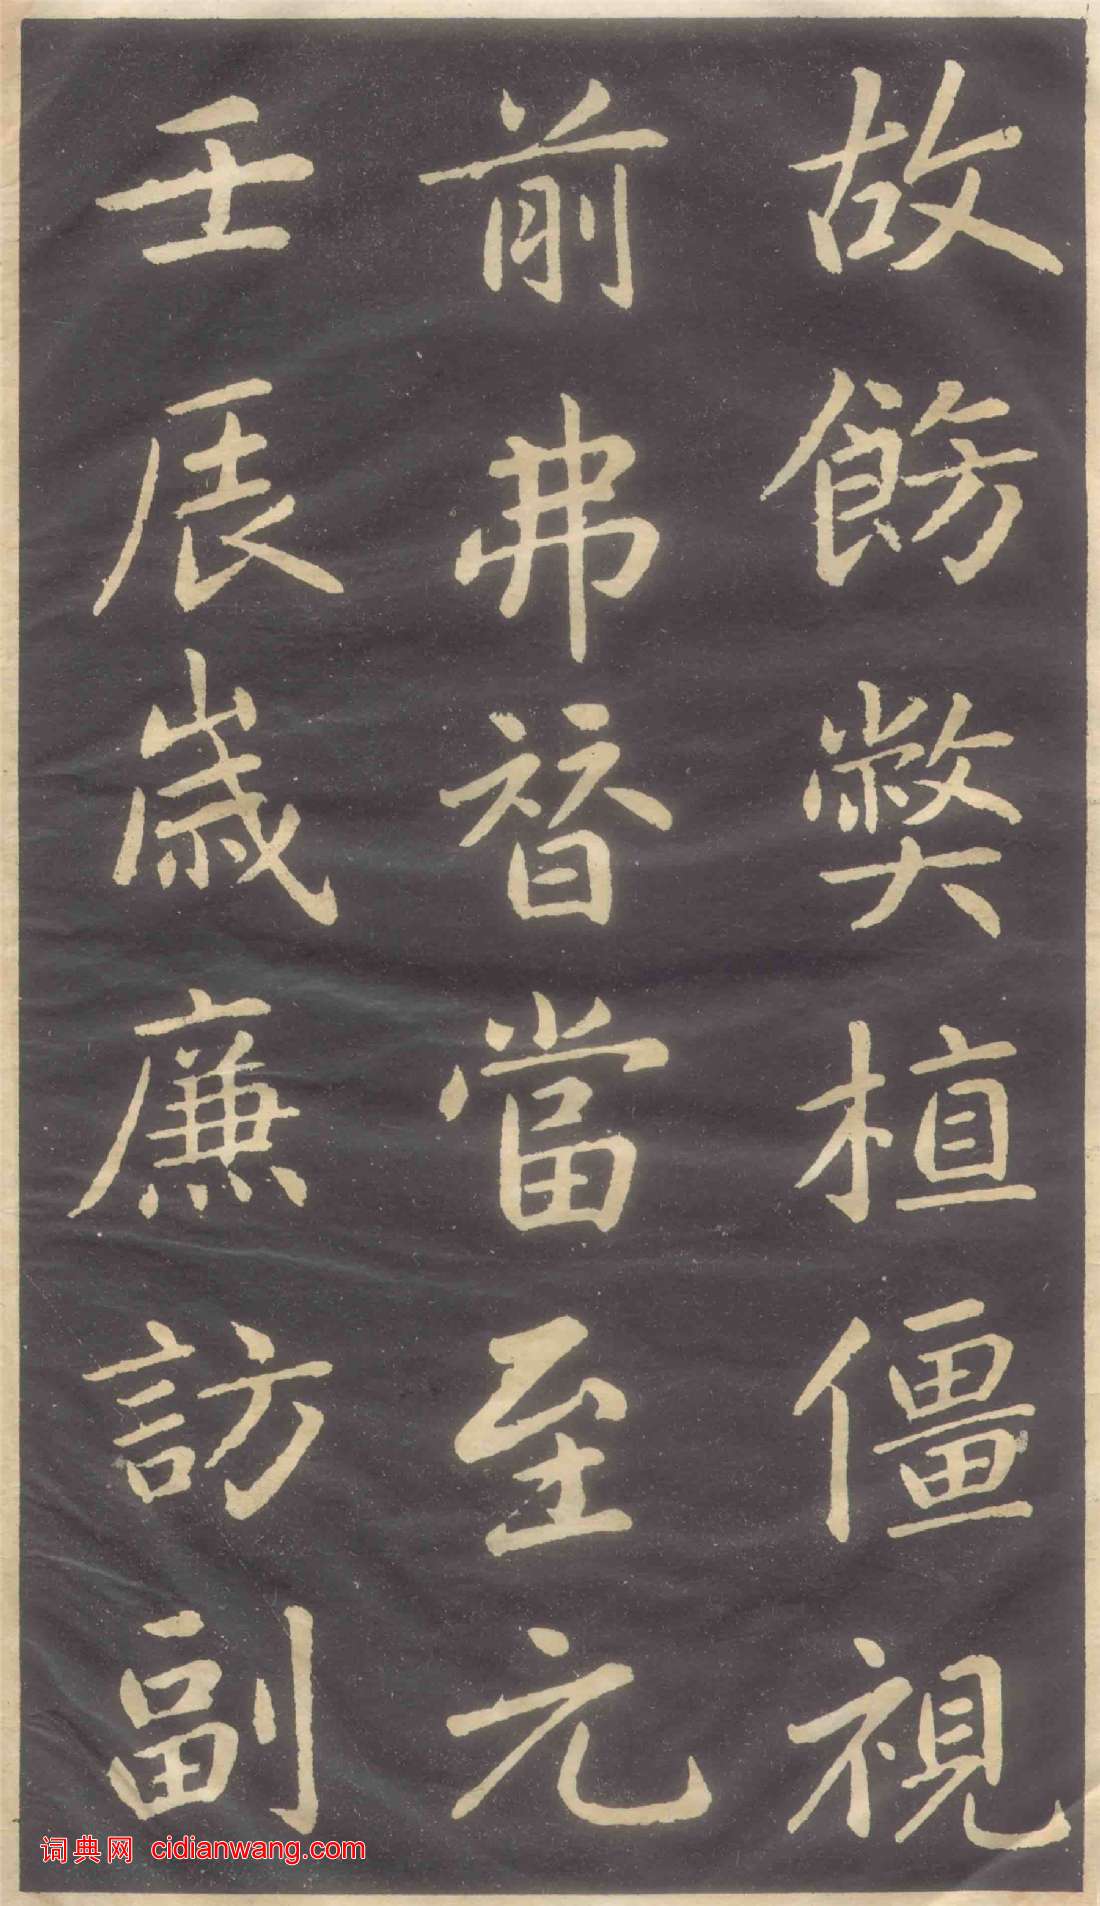 故飭𡚁植僵視
前弗替當至元
壬辰歲廉訪副
词典网 cidianwang.com